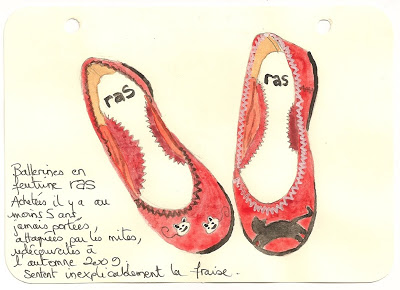 ras
ras
Ballerines en
feutrine ras
Achetées il y a au
moins 5 ans,
jamais portées,
attaquées par les mites,
redécouvertes à
l'automne 2009,
Sentent inexplicablement la fraise.